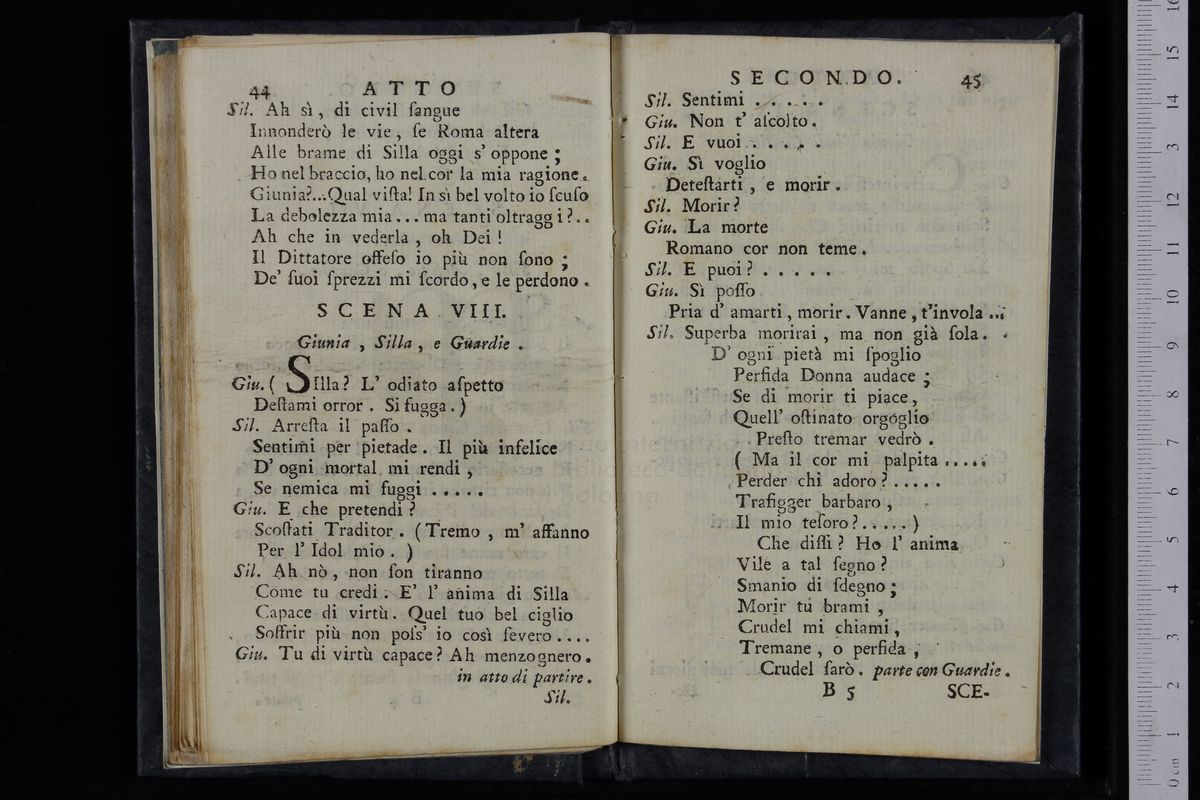 44 ATTO
Sil. Ah sì, di civil ſangue
Innonderò le vie, ſe Roma altera
Alle brame di Silla oggi s' oppone;
Ho nel braccio, ho nel cor la mia ragione.
Giunia?...Qual viſta! In sì bel volto io ſcuſo
La debolezza mia... ma tanti oltragg i?..
Ah che in vederla, oh Dei!
Il Dittatore offeſo io più non ſono;
De' ſuoi ſprezzi mi ſcordo, e le perdono.
SCENA VIII.
Giunia, Silla, e Guardie.
Giu. ( SIlla? L' odiato aſpetto
Deſtami orror. Si fugga.)
Sil. Arreſta il paſſo.
Sentimi per pietade. Il più infelice
D' ogni mortal mi rendi,
Se nemica mi fuggi.....
Giu. E che pretendi?
Scoſtati Traditor. (Tremo, m' affanno
Per l' Idol mio. )
Sil. Ah nò, non ſon tiranno
Come tu credi. E' l' anima di Silla
Capace di virtù. Quel tuo bel ciglio
Soffrir più non poſs' io così ſevero....
Giu. Tu di virtù capace? Ah menzognero.
in atto di partire.
Sil.
SECONDO. 45
Sil. Sentimi .....
Giu. Non t' aſcolto.
Sil. E vuoi.....
Giu. Sì voglio
Deteſtarti, e morir.
Sil. Morir?
Giu. La morte
Romano cor non teme.
Sil. E puoi? .....
Giu. Sì poſſo
Pria d' amarti, morir. Vanne, t'invola...
Sil. Superba morirai, ma non già ſola.
D' ogni pietà mi ſpoglio
Perfida Donna audace;
Se di morir ti piace,
Quell' oſtinato orgoglio
Preſto tremar vedrò.
( Ma il cor mi palpita.....
Perder chi adoro?.....
Trafigger barbaro,
Il mio teſoro?.....)
Che diſſi? Ho l' anima
Vile a tal ſegno?
Smanio di ſdegno;
Morir tu brami,
Crudel mi chiami,
Tremane, o perfida,
Crudel ſarò. parte con Guardie.
B 5 SCE-